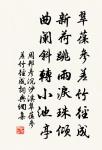 翠葆參差竹徑成
新荷跳雨淚珠傾
曲闌斜轉小池亭
周邦彥浣沙溪翠葆參
差竹徑成詞典詞集